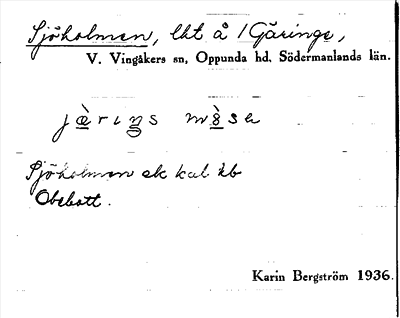 Sjöholmen, lht å 1 Gäringe,
V. Vingåkers sn, Oppunda hd. Södermanlands län.
jæ̀rings mò̱sa
Sjöholmen ek kal kb
Obebott.
Karin Bergström 1936.